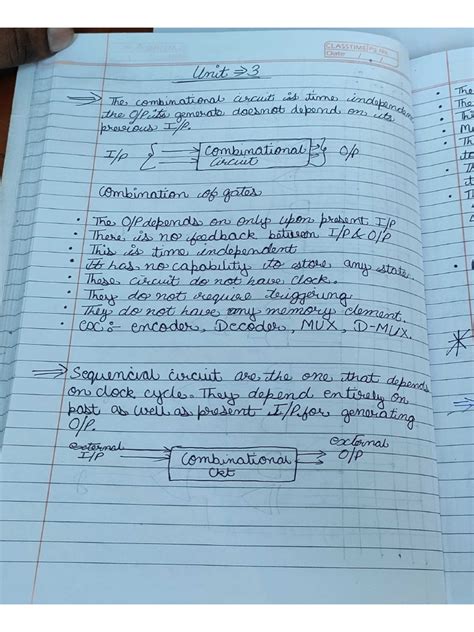 CLASSTIME Pg. No.
Date / /
Unit ⇒ 3
The combinational circuit is time independen
the O/P its generate doesnot depend on its
previous I/P.
I/P combinational circuit O/P
Combination of gates
• The O/P depends on only upon present I/P
• There is no feedback between I/P & O/P
• This is time independent
• It has no capability to store any state
• These circuit do not have clock.
• They do not require triggering
• They do not have any memory element.
• ex :- encoder, Decoder, MUX, D-MUX.
⇒ Sequencial circuit are the one that depends
on clock cycle. They depend entirely on
past as well as present I/P for generating
O/P.
external I/P Combinational Ckt external O/P